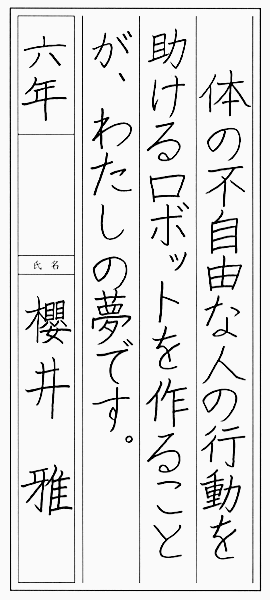 体の不自由な人の行動を
助けるロボットを作ること
が、わたしの夢です。
六年
氏名
櫻井 雅